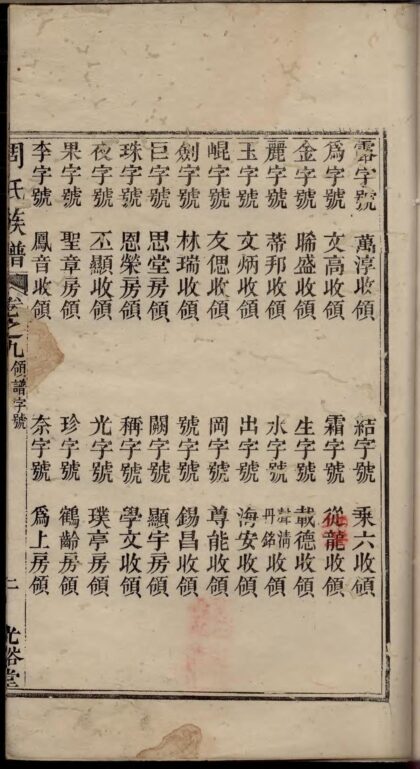 露字號 萬淳收領 結字號 乘六收領
爲字號 文高收領 霜字號 從龍收領
金字號 盛收領 生字號 載德收領
麗字號 蒂邦收領 水字號 聲清丹銘收領
玉字號 文炳收領 出字號 海安收領
崐字號 友偲收領 岡字號 尊能收領
劍字號 林瑞收領 號字號 錫昌收領
巨字號 思堂房領 闕字號 顯字房領
珠字號 恩榮房領 稱字號 學文收領
夜字號 丕顯收領 光字號 璞亭房領
果字號 聖章房領 珍字號 鶴齡房領
李字號 鳳音收領 柰字號 爲上房領
周氏族譜 卷之九 領譜字號 二 光裕堂